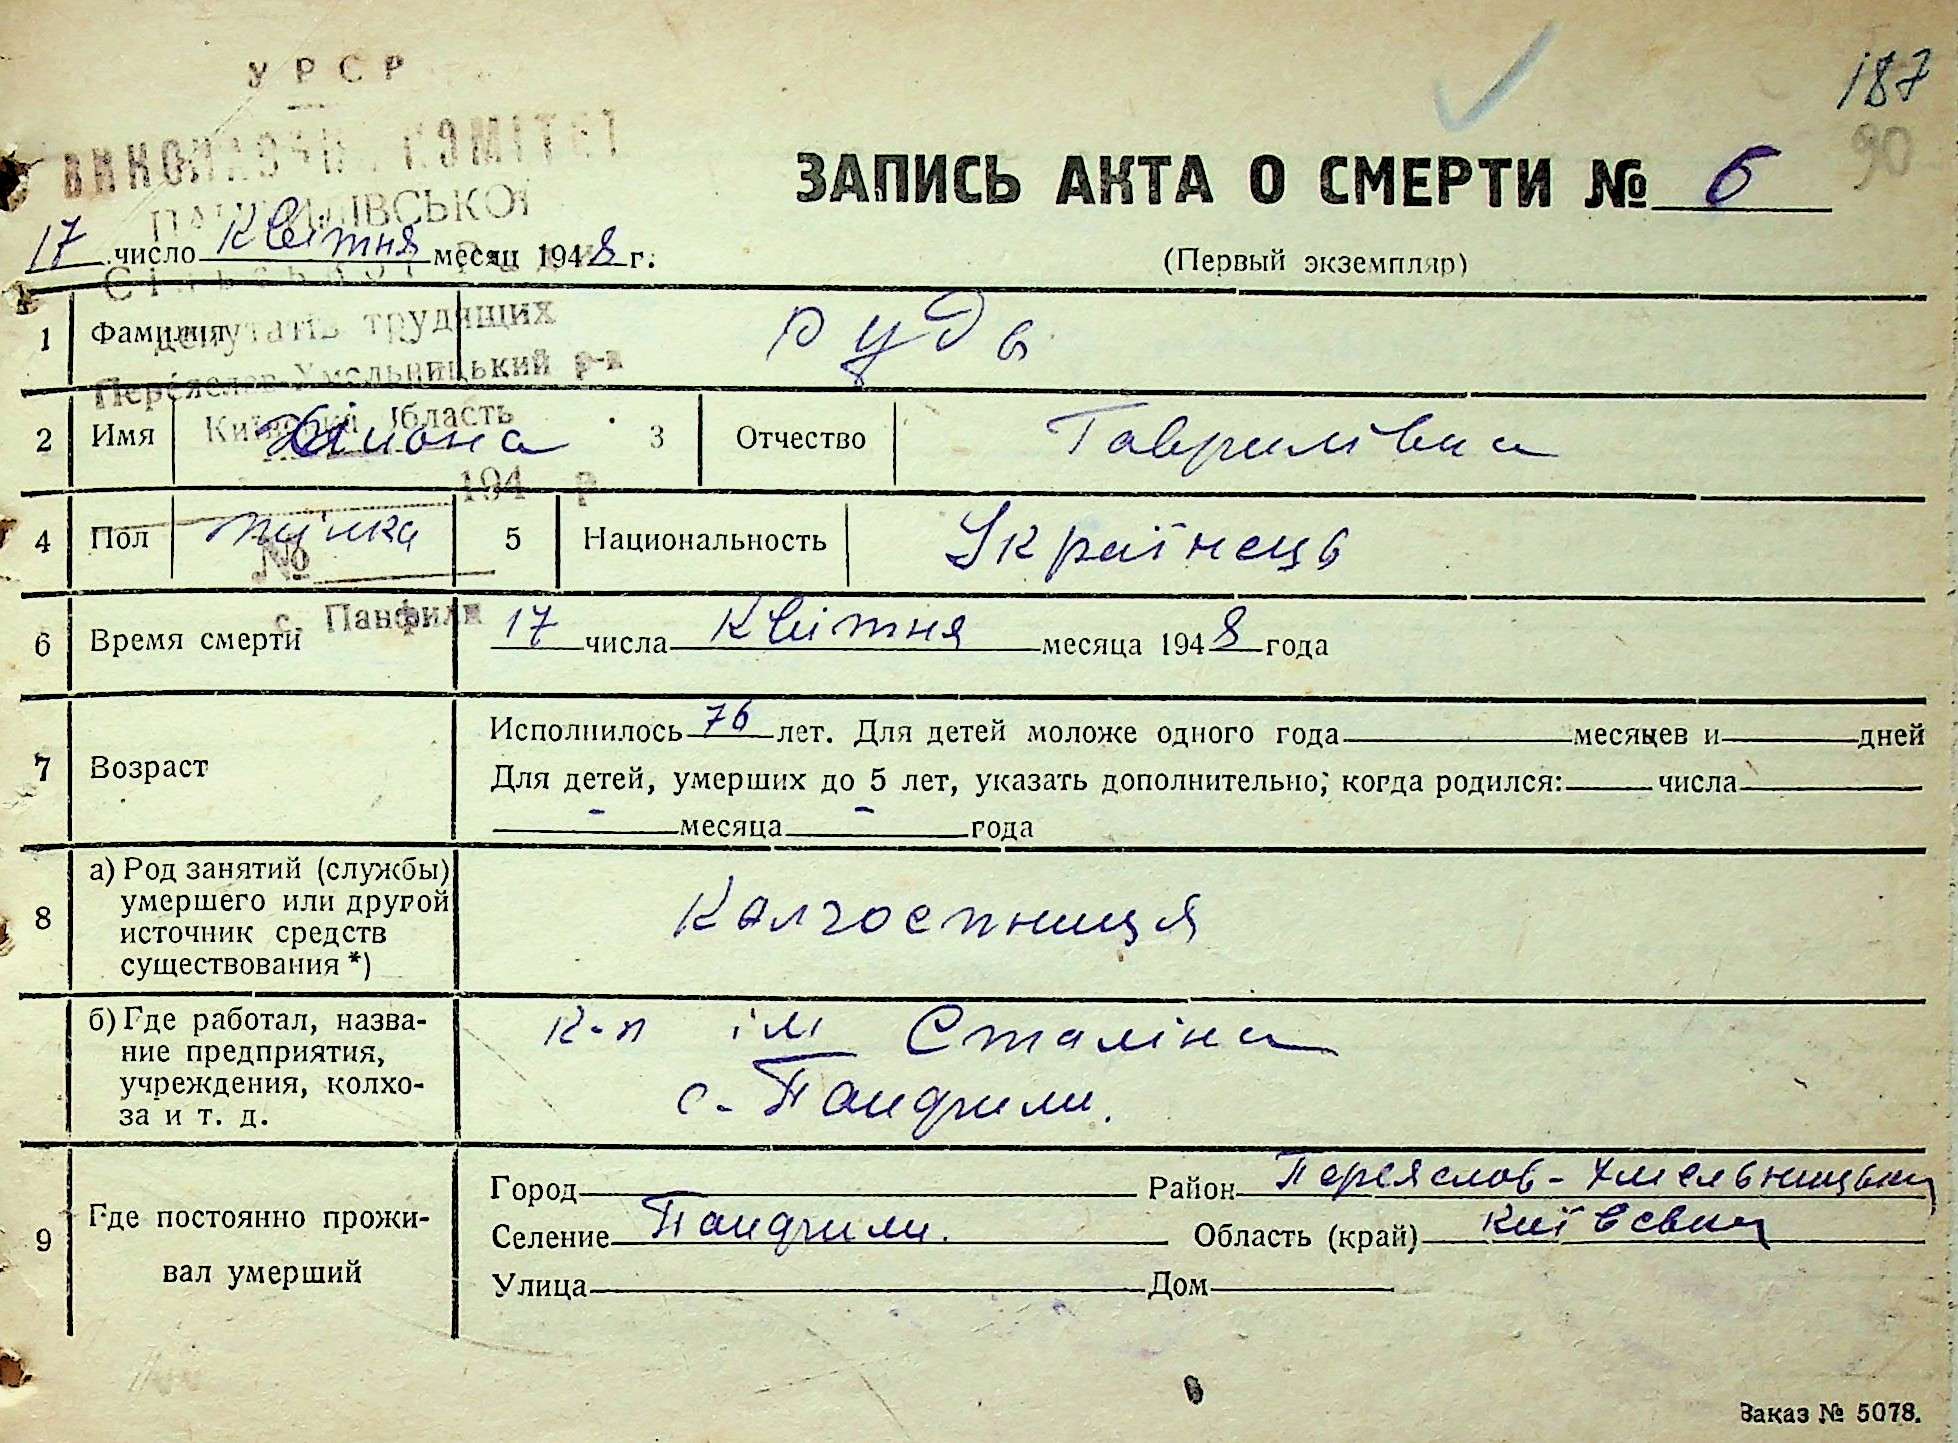 УРСР
187
ВИКОНАВЧИЙ КОМІТЕТ
90
ЗАПИСЬ АКТА О СМЕРТИ № 6
ПАНФИЛІВСЬКОЇ
17 число Квітня месяц 1948 г.
(Первый экземпляр)
Сільської Ради
1 Фамилия Рудь
депутатів трудящих
Переяслав-Хмельницький р-н
Київська область
2 Имя 3 Отчество Гаврилівна
194 р
4 Пол жінка 5 Национальность Українець
№
с. Панфили
6 Время смерти 17 числа Квітня месяца 1948 года
7 Возраст Исполнилось 76 лет. Для детей моложе одного года месяцев и дней
Для детей, умерших до 5 лет, указать дополнительно; когда родился: числа
- месяца - года
8 а) Род занятий (службы) умершего или другой источник средств существования *)
Колгоспниця
б) Где работал, назва-
ние предприятия,
учреждения, колхо-
за и т. д.
к-п ім Сталіна
с. Панфили.
9 Где постоянно прожи-
вал умерший
Город Район Переяслов-Хмельницький
Селение Панфили. Область (край) Київський
Улица Дом
Заказ № 5078.